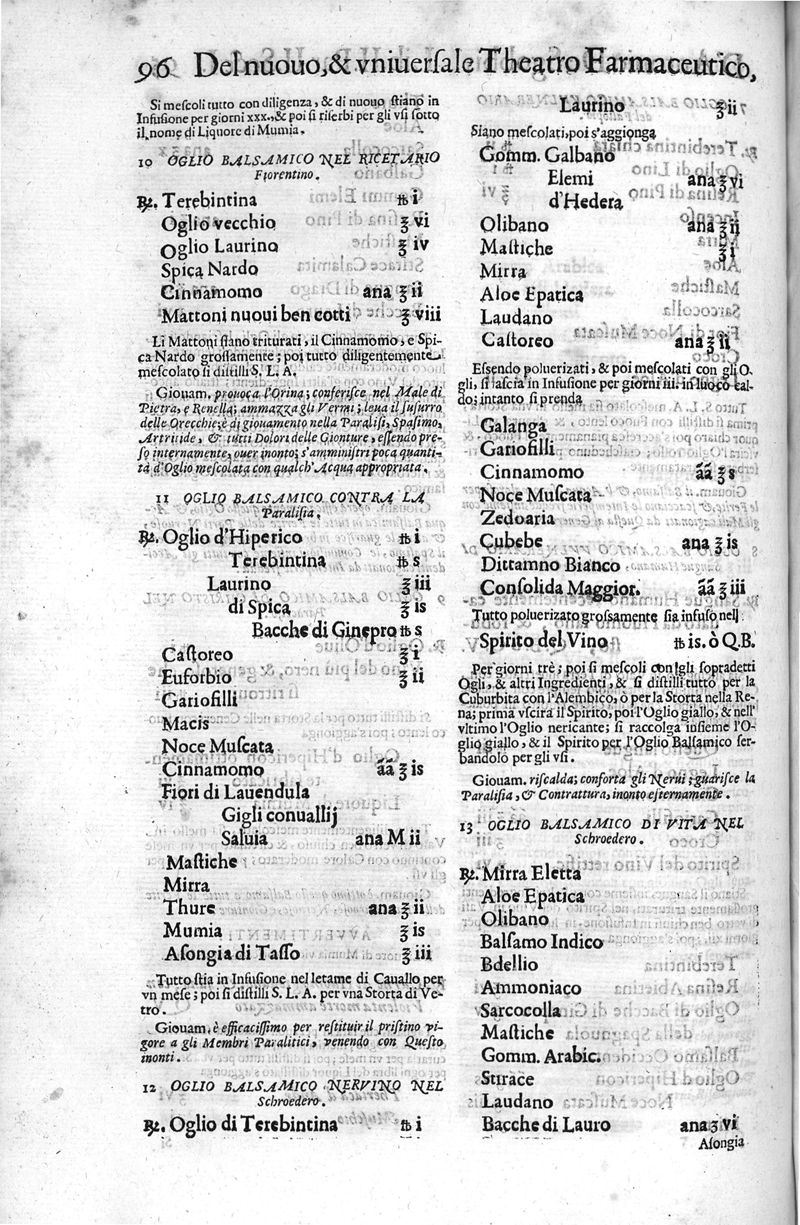 96 Del nuouo, & vniuerſale Theatro Farmaceutico,
Si meſcoli tutto con diligenza, & di nuouo ſtiano in
Infuſione per giorni xxx., & poi ſi riſerbi per gli vſi ſotto
il nome di Liquore di Mumia.
10 OGLIO BALSAMICO NEL RICETARIO
Fiorentino.
℞. Terebintina ℔ i
Oglio vecchio ℥ vi
Oglio Laurino ℥ iv
Spica Nardo
Cinnamomo ana ℥ ii
Mattoni nuoui ben cotti ℥ viii
Li Mattoni ſiano triturati, il Cinnamomo, e Spi-
ca Nardo groſſamente; poi tutto diligentemente
meſcolato ſi diſtilli S. L. A.
Giouam. prouoca l'Orina; conferiſce nel Male di
Pietra, e Renella; ammazza gli Vermi; leua il ſuſurro
delle Orecchie; è di giouamento nella Paraliſi, Spaſimo,
Artritide, & tutti Dolori delle Gionture, eſſendo pre-
ſo internamente, ouer inonto; s'amminiſtri poca quanti-
tà d'Oglio meſcolata con qualch'Acqua appropriata.
11 OGLIO BALSAMICO CONTRA LA
Paraliſia.
℞. Oglio d'Hiperico ℔ i
Terebintina ℔ s
Laurino ℥ iii
di Spica ℥ is
Bacche di Ginepro ℔ s
Caſtoreo ℥ i
Euforbio ℥ ii
Gariofilli
Macis
Noce Muſcata
Cinnamomo āā ℥ is
Fiori di Lauendula
Gigli conuallij
Saluia ana M ii
Maſtiche
Mirra
Thure ana ℥ ii
Mumia ℥ is
Aſongia di Taſſo ℥ iii
Tutto ſtia in Infuſione nel letame di Cauallo per
vn meſe; poi ſi diſtilli S. L. A. per vna Storta di Ve-
tro.
Giouam. è efficaciſſimo per reſtituir il priſtino vi-
gore a gli Membri Paralitici, venendo con Queſto
inonti.
12 OGLIO BALSAMICO NERVINO NEL
Schroedero.
℞. Oglio di Terebintina ℔ i
Laurino ℥ ii
Siano meſcolati, poi s'aggionga
Gomm. Galbano
Elemi ana ℥ vi
d'Hedera
Olibano ana ℥ ii
Maſtiche ℥ i
Mirra
Aloe Epatica
Laudano
Caſtoreo ana ℥ ii
Eſſendo poluerizati, & poi meſcolati con gli O-
gli, ſi laſcia in Infuſione per giorni iii. in luoco cal-
do; intanto ſi prenda
Galanga
Gariofilli
Cinnamomo āā ℥ s
Noce Muſcata
Zedoaria
Cubebe ana ℥ is
Dittamno Bianco
Conſolida Maggior. āā ℥ iii
Tutto poluerizato groſſamente ſia infuſo nell
Spirito del Vino ℔ is. ò Q.B.
Per giorni trè; poi ſi meſcoli con gli ſopradetti
Ogli, & altri Ingredienti, & ſi diſtilli tutto per la
Cuburbita con l'Alembico, ò per la Storta nella Re-
na; prima vſcirà il Spirito, poi l'Oglio giallo, & nell'
vltimo l'Oglio nericante; ſi raccolga inſieme l'O-
glio giallo, & il Spirito per l'Oglio Balſamico ſer-
bandolo per gli vſi.
Giouam. riſcalda; conforta gli Nerui; guariſce la
Paraliſia, & Contrattura, inonto eſternamente.
13 OGLIO BALSAMICO DI VITA NEL
Schroedero.
℞. Mirra Eletta
Aloe Epatica
Olibano
Balſamo Indico
Bdellio
Ammoniaco
Sarcocolla
Maſtiche
Gomm. Arabic.
Stirace
Laudano
Bacche di Lauro ana ʒ vi
Aſongia